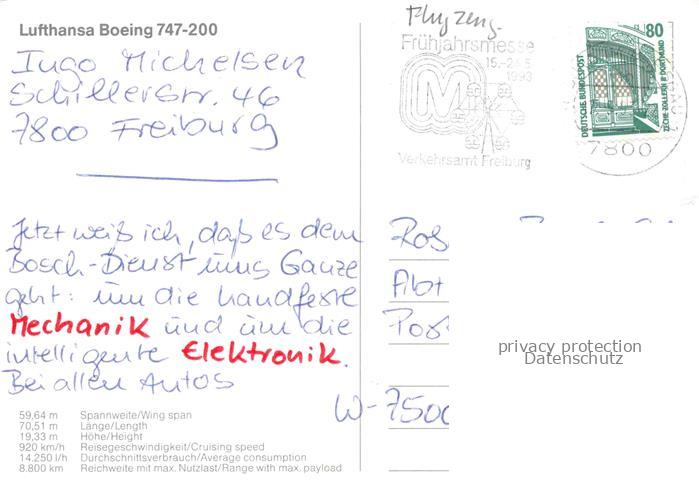 Lufthansa Boeing 747-200
Ingo Michelsen
Schillerstr. 46
7800 Freiburg
Jetzt weiß ich, daß es dem
Bosch-Dienst ums Ganze
geht: um die handfeste
Mechanik und um die
intelligente Elektronik.
Bei allen Autos
59,64 m Spannweite/Wing span
70,51 m Länge/Length
19,33 m Höhe/Height
920 km/h Reisegeschwindigkeit/Cruising speed
14.250 l/h Durchschnittsverbrauch/Average consumption
8.800 km Reichweite mit max. Nutzlast/Range with max. payload
Flugzeug
Frühjahrsmesse
1993
M
Verkehrsamt Freiburg
80
DEUTSCHE BUNDESPOST
ZECHE ZOLLERN II DORTMUND
7800
Abt
Post
W-7500
privacy protection
Datenschutz